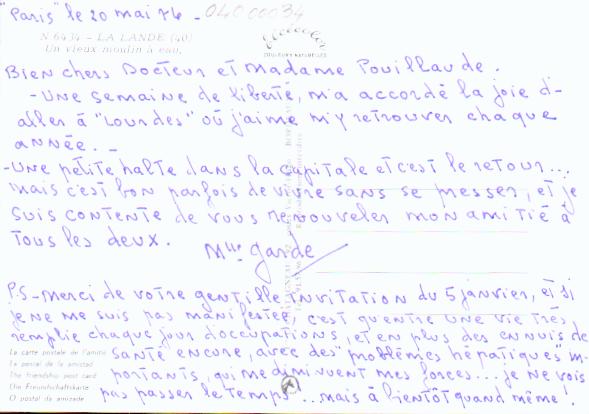 "Paris" le 20 mai 76 - 04000034
N 6434 - LA LANDE (40)
Un vieux moulin à eau.
COULEURS NATURELLES
Bien chers Docteur et Madame Pouillaude.
- Une semaine de liberté, m'a accordé la joie d'-
aller à "Lourdes" où j'aime m'y retrouver chaque
année. -
- Une petite halte dans la capitale et c'est le retour...
mais c'est bon parfois de vivre sans se presser, et je
suis contente de vous renouveler mon amitié à
tous les deux.
Mlle Garde
P.S - Merci de votre gentille invitation du 5 janvier, et si
je ne me suis pas manifestée, c'est qu'entre une vie très
remplie chaque jour d'occupations, et en plus des ennuis de
santé encore, avec des "problèmes hépatiques" im-
portants, qui me diminuent mes forces... je ne vois
pas passer le temps... mais à bientôt quand même !
La carte postale de l'amitié
La postal de la amistad
The friendship post card
Die Freundschaftskarte
O postal da amizade